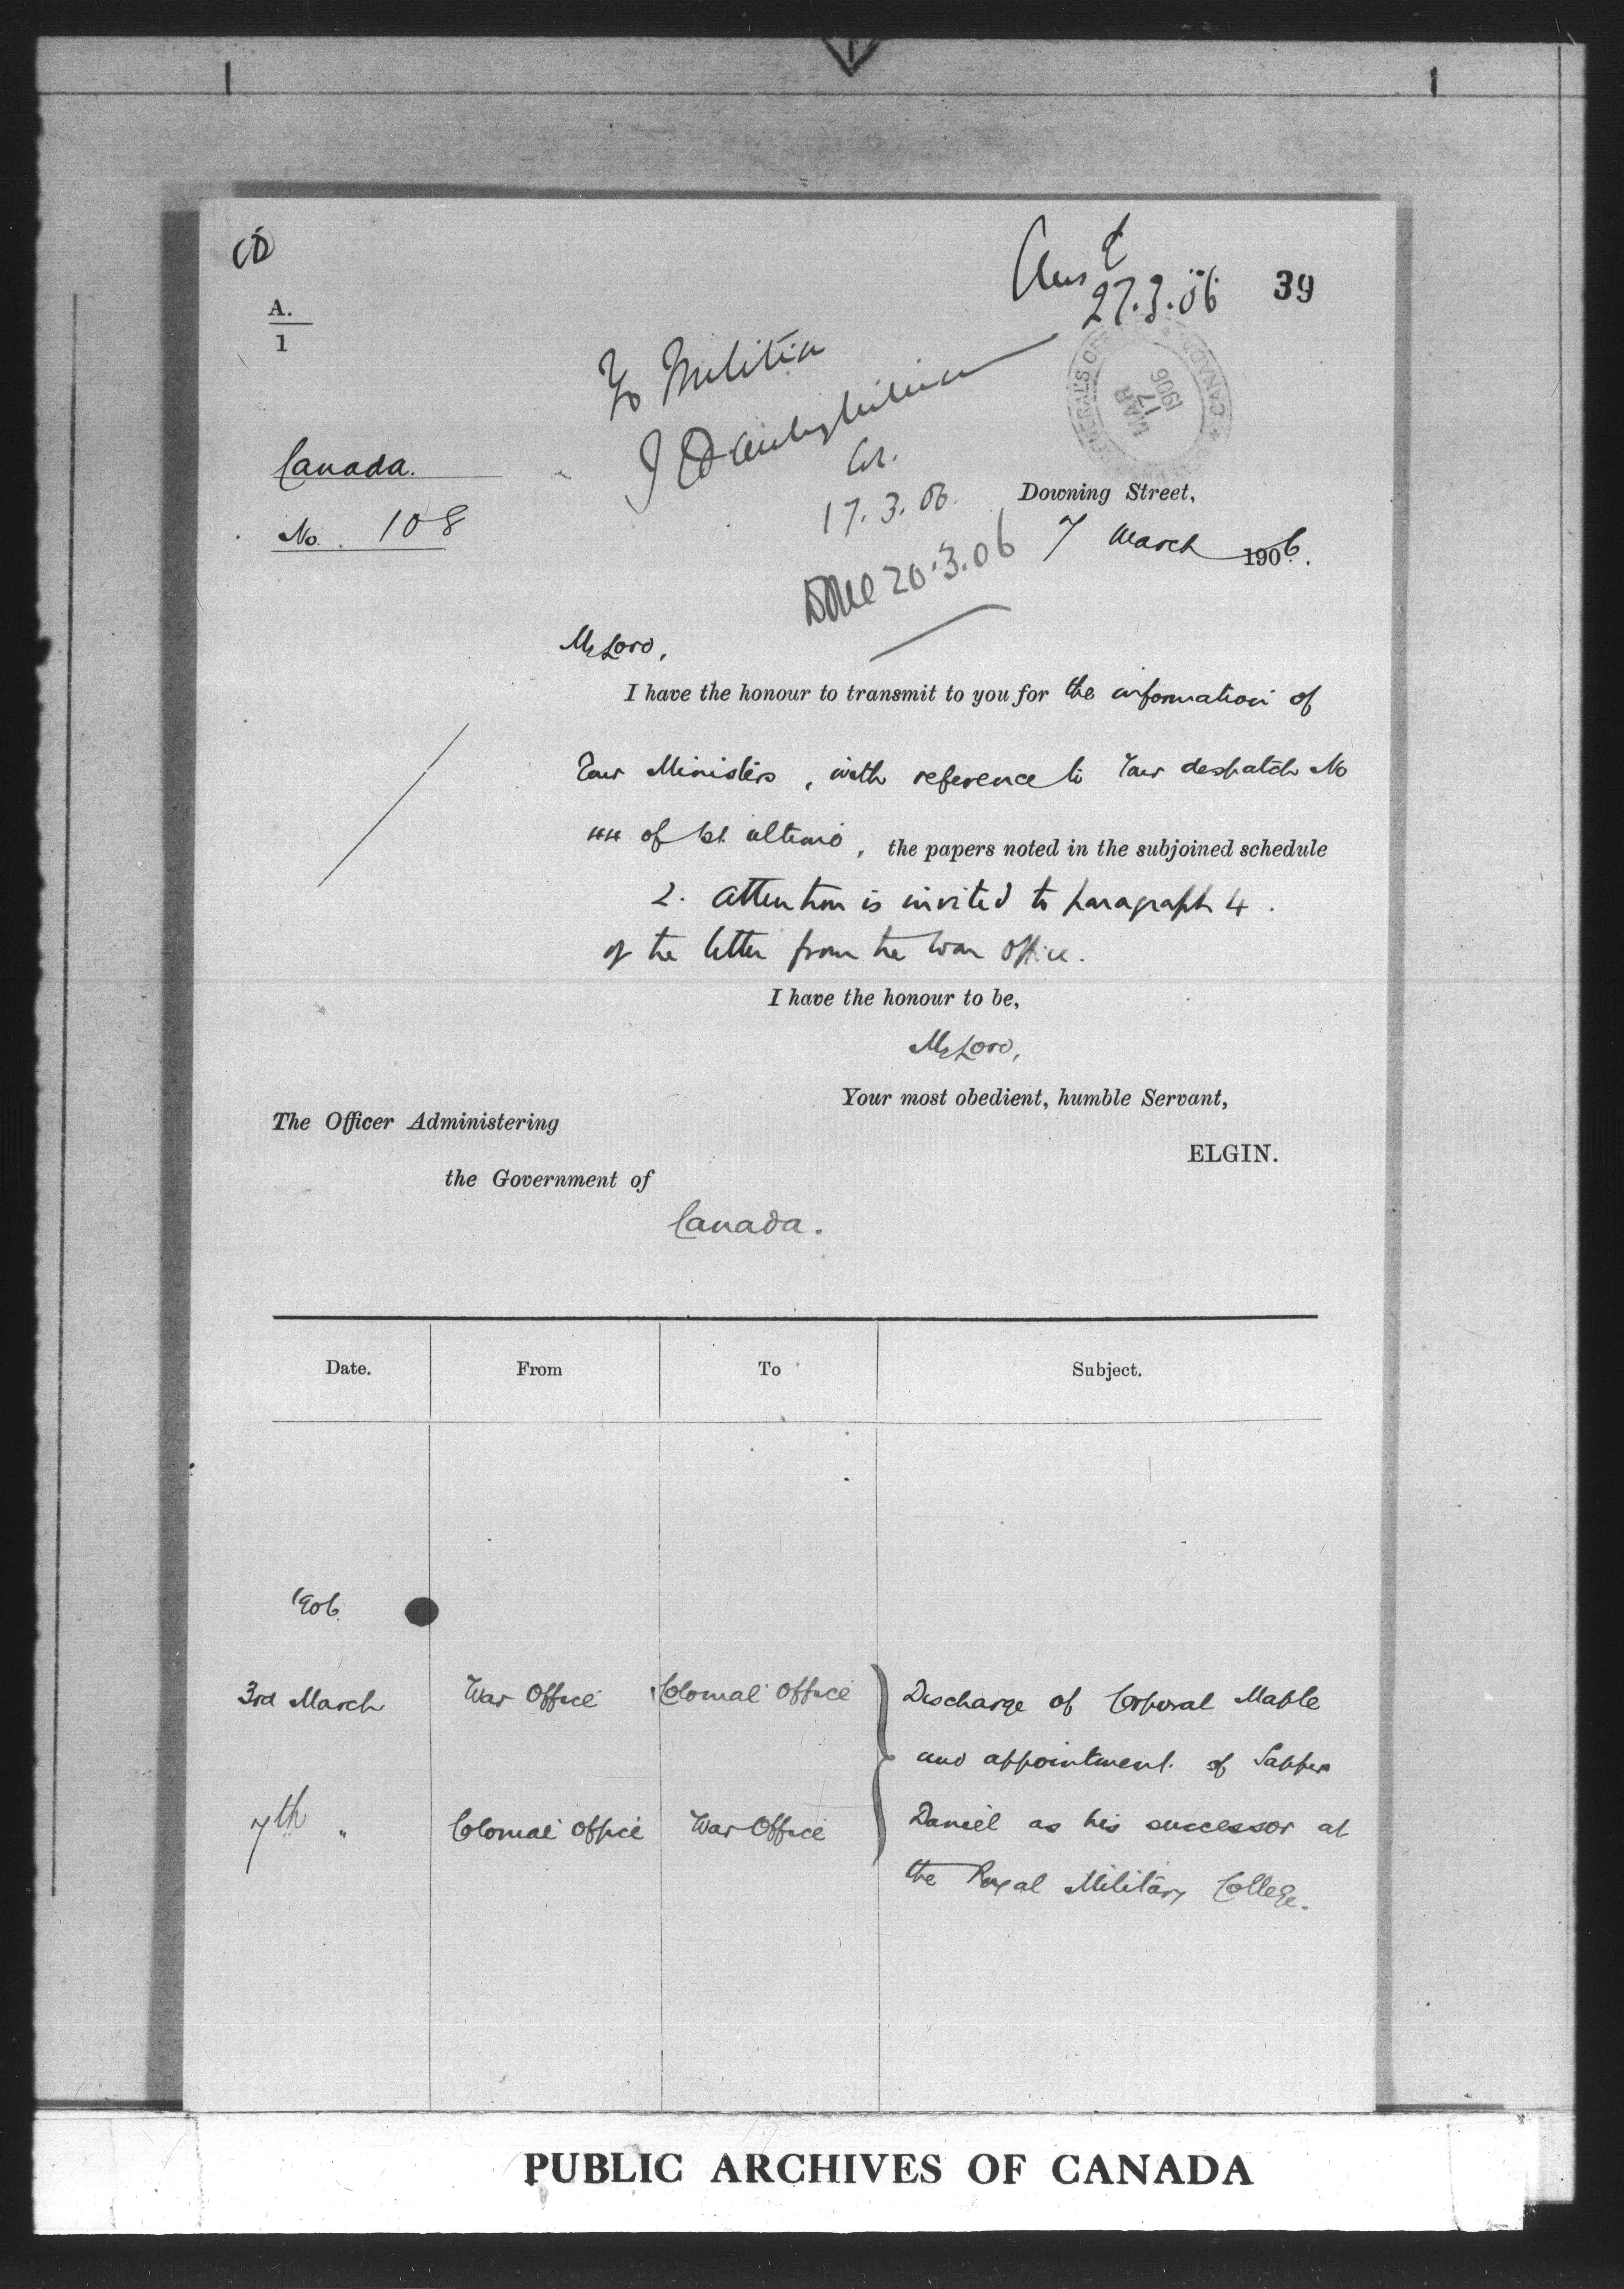 Ans d
27.3.06
39
A.
1
To Militia
Canada.
17.3.06.
GENERAL'S OFF
CANADA
MAR
17
1906
Downing Street,
No. 108
7 March 1906.
Done 20.3.06
My Lord,
I have the honour to transmit to you for the information of
Your Ministers, with reference to Your despatch No
44 of 1st ultimo, the papers noted in the subjoined schedule
2. Attention is invited to paragraph 4.
of the letter from the War Office.
I have the honour to be,
My Lord,
Your most obedient, humble Servant,
ELGIN.
The Officer Administering
the Government of
Canada.
Date. From To Subject.
1906.
3rd March War Office Colonial Office Discharge of Corporal Mable
and appointment of Sapper
7th " Colonial Office War Office Daniel as his successor at
the Royal Military College.
PUBLIC ARCHIVES OF CANADA